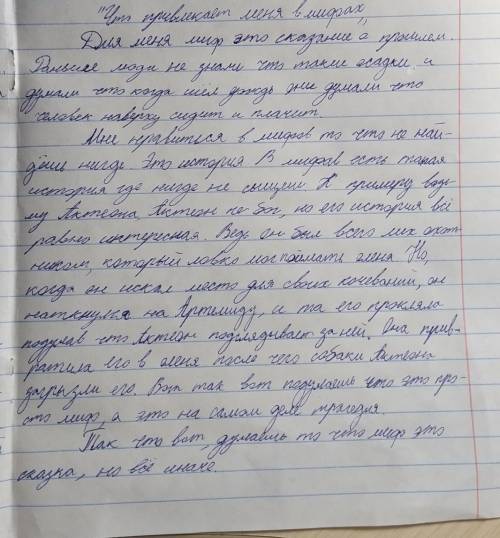 "Что привлекает меня в мифах"
Для меня миф это сказание о прошлом.
Раньше люди не знали что такие осадки и
думали что когда шёл дождь они думали что
человек наверху сидит и плачит.
Мне нравиться в мифов то что не най-
дёшь нигде. Это история В мифав есть такая
история где нигде не сыщеш. К примеру возь-
му Актеона, Актеон не бог, но его история всё
равно интересная. Ведь он был всего лиш охот-
ником, который ловко мог поймать оленя. Но,
когда он искал место для своих кочеваний, он
наткнулья на Артемиду, и та его прокляла
подумав что Актеон подглядывает за ней. Она прив-
ратила его в оленя после чего собаки Актеона
загрызли его. Вот так вот подумаешь что это про-
сто миф, а это на самом деле трагедия.
Так что вот, думаешь то что миф это
сказка, но всё иначе.